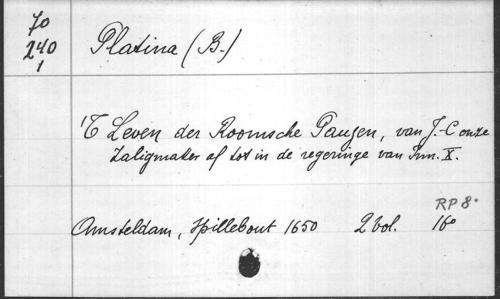 70
240
1
Platina (B.)
'T Leven der Roomsche Pausen, van J.-C onze
Zaligmaker af tot in de regeringe van Inn. X.
RP 8°
Amsteldam, Hillebout 1650 2 vol. 16°